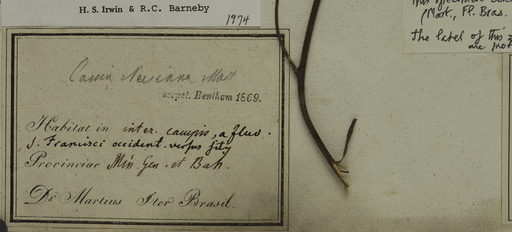 H. S. Irwin & R.C. Barneby
1974
(Mart., Fl. Bras.
The label of this
are not
Cassia
script. Bentham 1869.
Habitat in inter. campis, a fluv.
S. Francisci occident. versus
Provinciae Min. Ger. et Bah.
Dr Martius Iter Brasil.